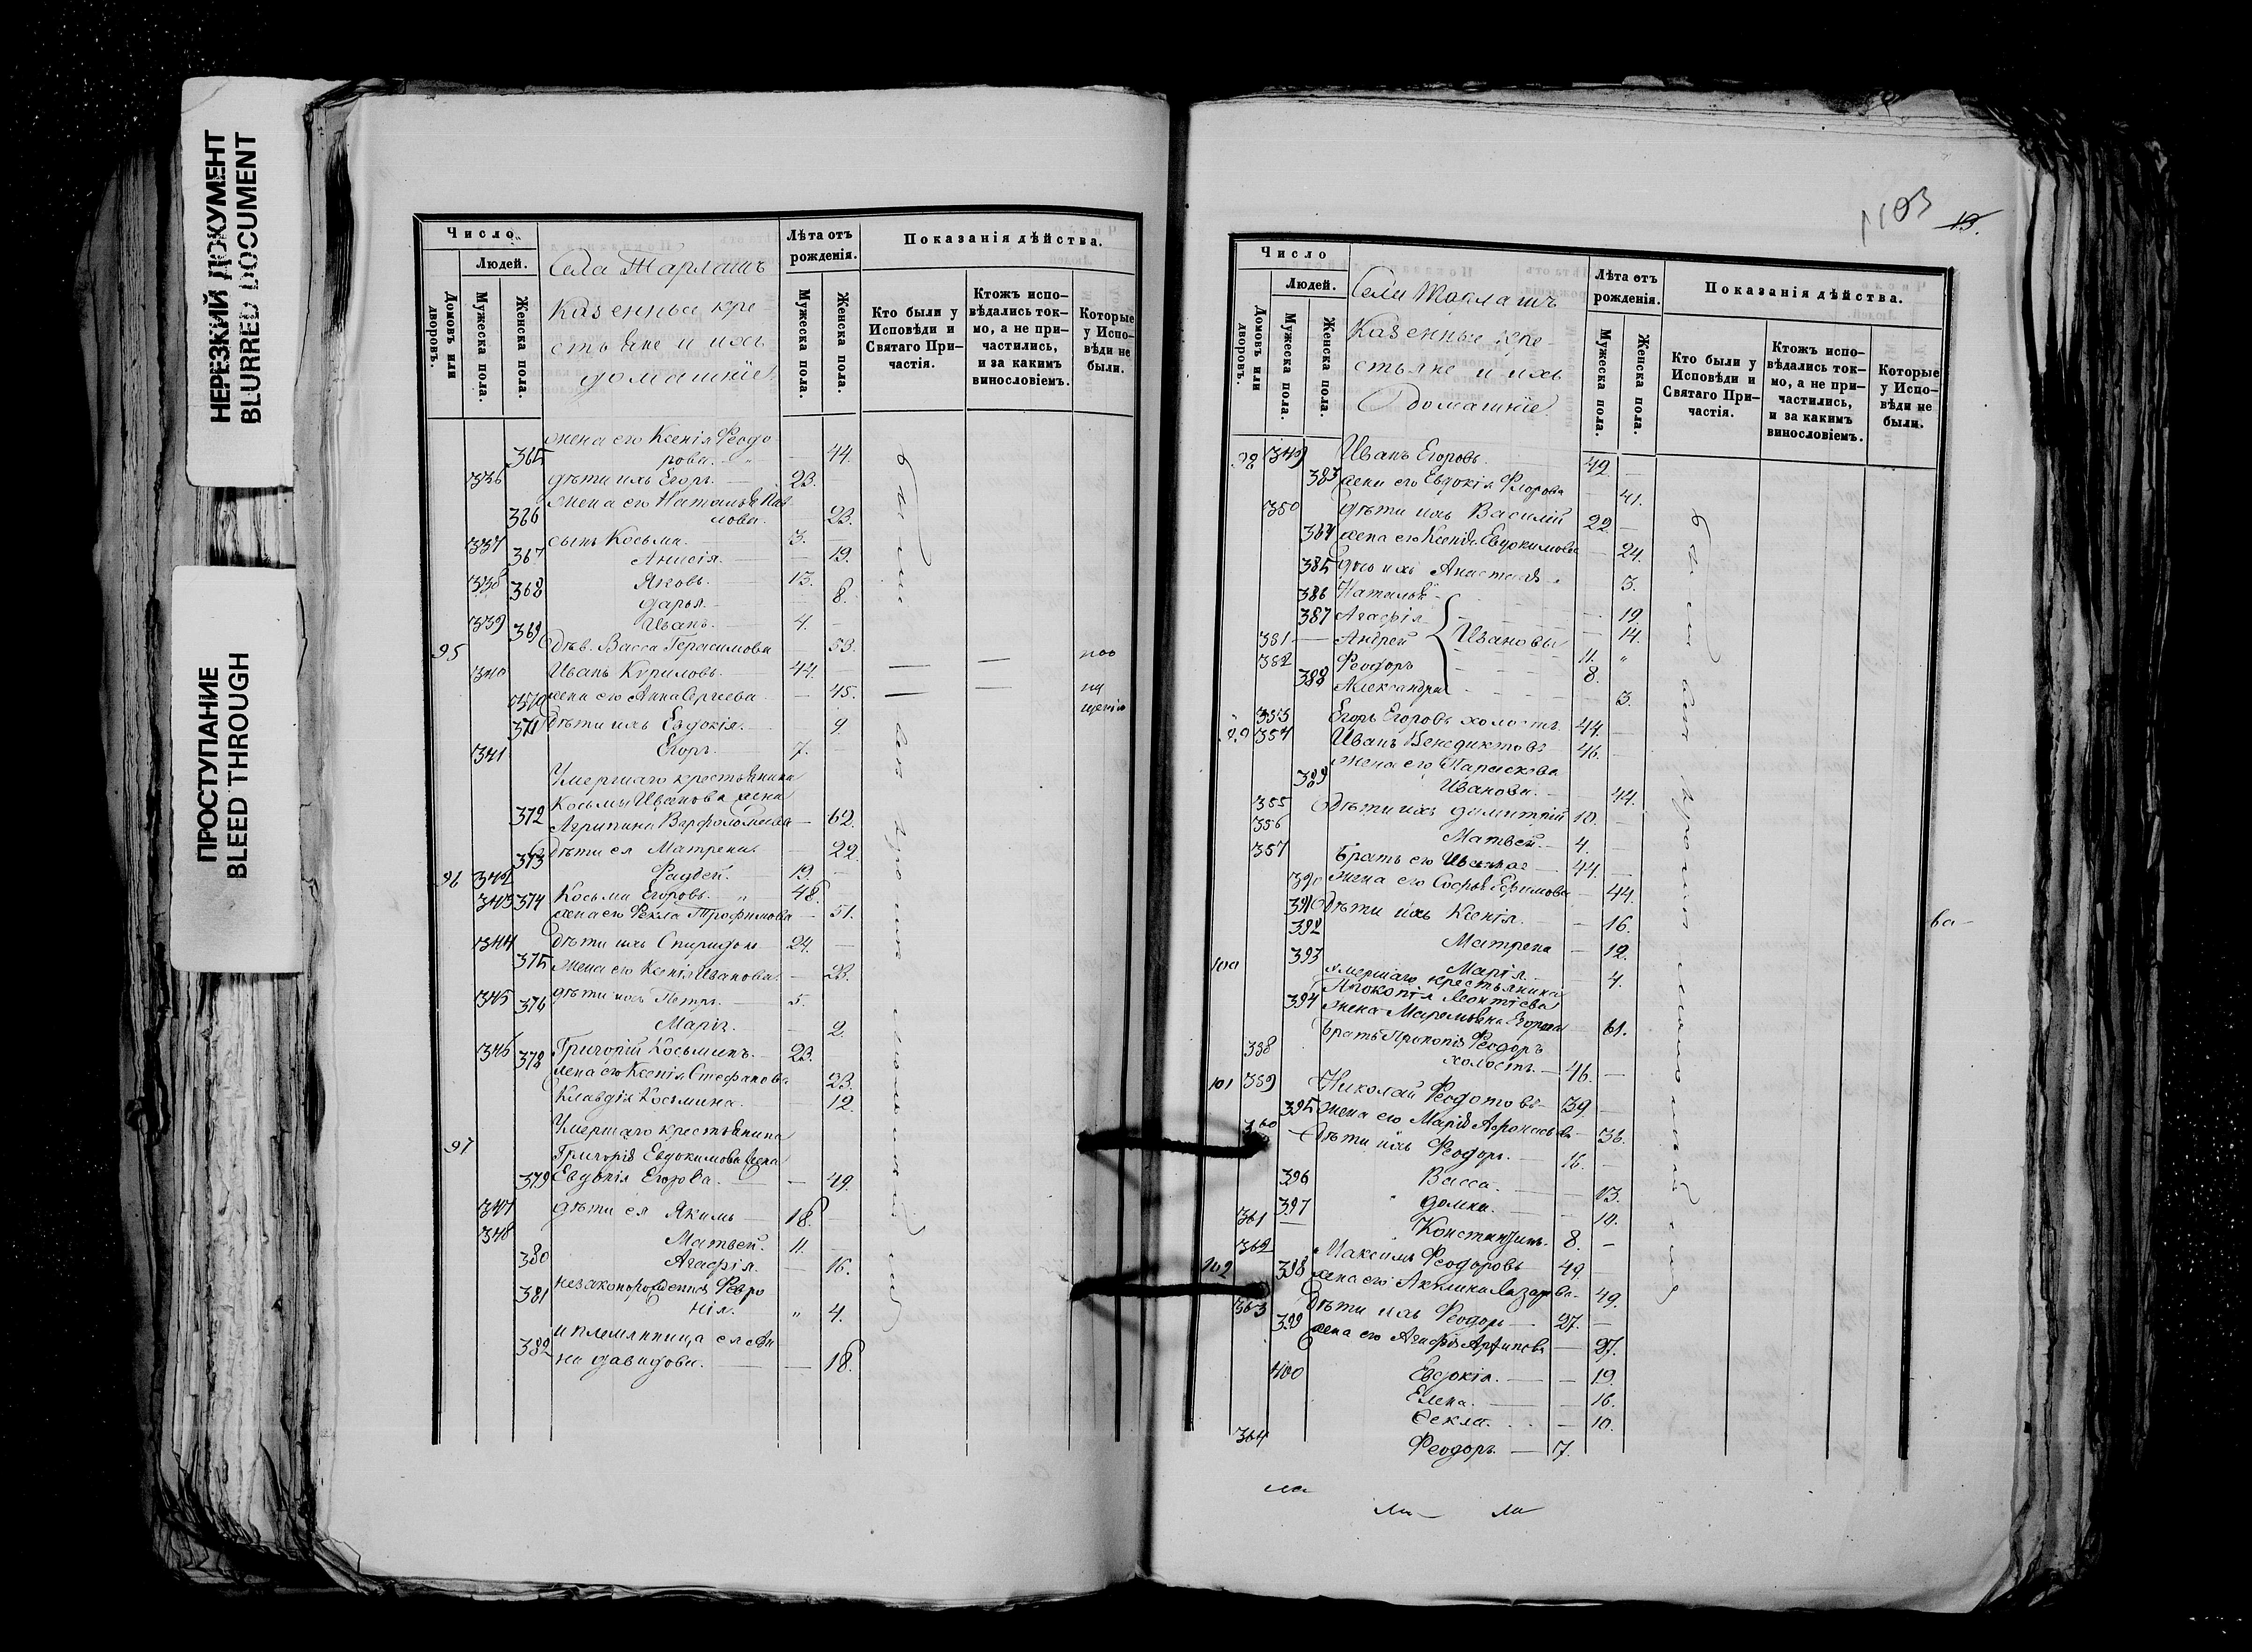 НЕРЕЗКИЙ ДОКУМЕНТ
BLURRED DOCUMENT
ПРОСТУПАНИЕ
BLEED THROUGH
Число
Людей.
Домовъ или дворовъ.
Мужеска пола.
Женска пола.
Села Тарлашъ
Казенные кре
стьяне и ихъ
домашніе.
Лѣта отъ рожденія.
Мужеска пола.
Женска пола.
Показанія дѣйства.
Кто были у Исповѣди и Святаго При-частія.
Ктожъ испо-вѣдались ток-мо, а не при-частились, и за какимъ винословіемъ.
Которые у Испо-вѣди не были.
365 жена его Ксенія Феодо
рова. — 44.
336 дѣти ихъ Егоръ. 23. —
366 жена его Наталья Пав
лова. 23.
337 сынъ Косьма. 3. —
367 Анисія. — 19.
338 Яковъ. 13.
368 Дарья. 8.
339 Иванъ. 4. —
95 369 Вдов. Васса Герасимова — 53.
340 Иванъ Кириловъ. 44. —
370 жена его Анна Сергеева — 45.
371 дѣти ихъ Евдокія. 9.
341 Егоръ. 7. —
Умершаго крестьянина
Косьмы Иванова жена
372 Агрипина Варфоломеева — 62.
373 дѣти ея Матрена. — 22.
342 Фаддей. 19. —
96 343 Косьма Егоровъ. 48.
374 жена его Фекла Трофимова — 51.
344 дѣти ихъ Спиридонъ 24. —
375 жена его Ксенія Иванова. — 23.
345 дѣти ихъ Петръ. 5.
376 Марія. — 2.
346 Григорій Косьминъ. 23.
378 жена его Ксенія Стефанова 23.
Клавдія Косьмина. — 12.
97 Умершаго крестьянина
Григорія Евдокимова жена
379 Евдокія Егорова. — 49.
347 дѣти ея Якимъ 18. —
348 Матвей. 11. —
380 Агафія. — 16.
381 незаконорожденная Февро
нія. " 4.
382 и племянница ея Ан
на Давидова. — 18.
1103
13.
Число
Людей.
Домовъ или дворовъ.
Мужеска пола.
Женска пола.
Села Тарлашъ
Казенные кре
стьяне и ихъ
домашніе.
Лѣта отъ рожденія.
Мужеска пола.
Женска пола.
Показанія дѣйства.
Кто были у Исповѣди и Святаго При-частія.
Ктожъ испо-вѣдались ток-мо, а не при-частились, и за какимъ винословіемъ.
Которые у Испо-вѣди не были.
98 349 Иванъ Егоровъ. 42. —
383 жена его Евдокія Флорова — 41.
350 дѣти ихъ Василій 22. —
384 жена его Ксенія Евдокимова — 24.
385 дочь ихъ Анастасія 3.
386 Наталья
387 Агафія — 19.
351 Андрей } Ивановы — 14.
352 Феодоръ 11. "
388 Александра 8.
3.
353 Егоръ Егоровъ холостъ. 44. —
99 354 Иванъ Венедиктовъ 46. —
жена его Параскева
389 Иванова. — 44.
355 дѣти ихъ Димитрій 10. —
356 Матвей. 4. —
357 Братъ его 44. —
390 жена его Софья Ефимова — 44.
391 дѣти ихъ Ксенія. — 16.
392 Матрена — 12.
393 Марія. — 4.
100 умершаго крестьянина
Прокопія Леонтіева
394 жена Маремьяна Егорова — 61.
братъ Прокопія Феодоръ
358 холостъ. 46. —
101 359 Николай Феодотовъ 39. —
395 жена его Марія Афонасьева — 36.
360 дѣти ихъ Феодоръ. 16. —
396 Васса. — 13.
397 Домна. — 10.
361 Константинъ. 8. —
102 362 Максимъ Феодоровъ 49. —
398 жена его Акилина Лазарева — 49.
363 дѣти ихъ Феодоръ 27. —
399 жена его Агафія Архипова — 27.
400 Евдокія. — 19.
Елена. — 16.
Фекла. — 10.
364 Феодоръ — 7.
ва
ла
ла ла